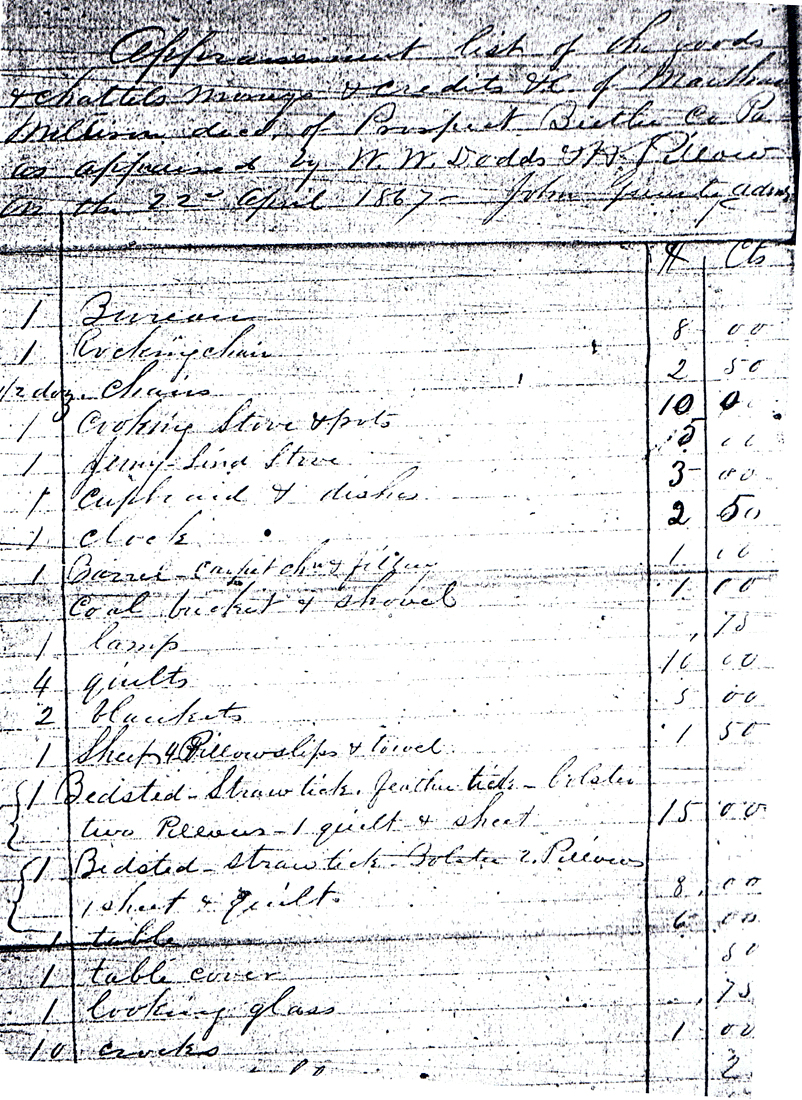 Appraisement list of the goods
& chattels monys & credits &c. of Martha
decd. of Prospect Butler Co Pa
as appraised by W. W. Dodds & Pillow
on the 22nd April 1867 - John adm
$ Cts
1 Bureau 8 00
1 Rocking chair 2 50
1/2 doz. chairs 10 0
1 Cooking Stove & pots 5
1 Jenny-Lind Stove 3 00
1 cupboard & dishes 2 50
1 clock 1 00
1 Barrel - carpet 1 00
Coal bucket & shovel
1 lamp , 75
4 quilts 10 00
2 blankets 5 00
1 Sheet 4 Pillowslips & towel 1 50
1 Bedsted - Straw tick. feather tick - bolster
two Pillows - 1 quilt & sheet 15 00
1 Bedsted - straw tick - Bolster 2. Pillows
1 sheet & quilts 8. 00
1 table 6 00
1 table cover 50
1 looking glass , 75
10 crocks 1 00
2